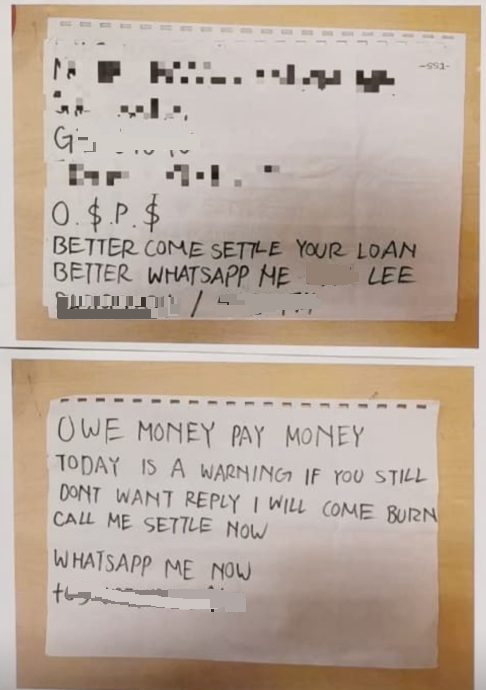 -991-
O.$.P.$
BETTER COME SETTLE YOUR LOAN
BETTER WHATSAPP ME LEE
/
OWE MONEY PAY MONEY
TODAY IS A WARNING IF YOU STILL
DONT WANT REPLY I WILL COME BURN
CALL ME SETTLE NOW
WHATSAPP ME NOW